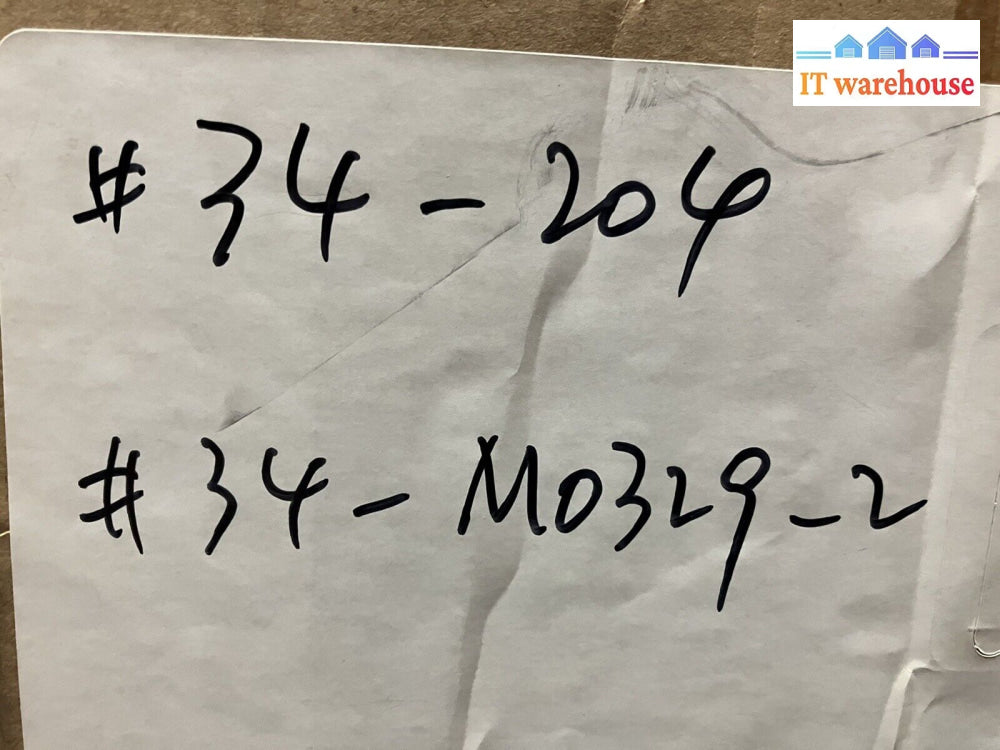 IT warehouse
#34-204
#34-M0329-2